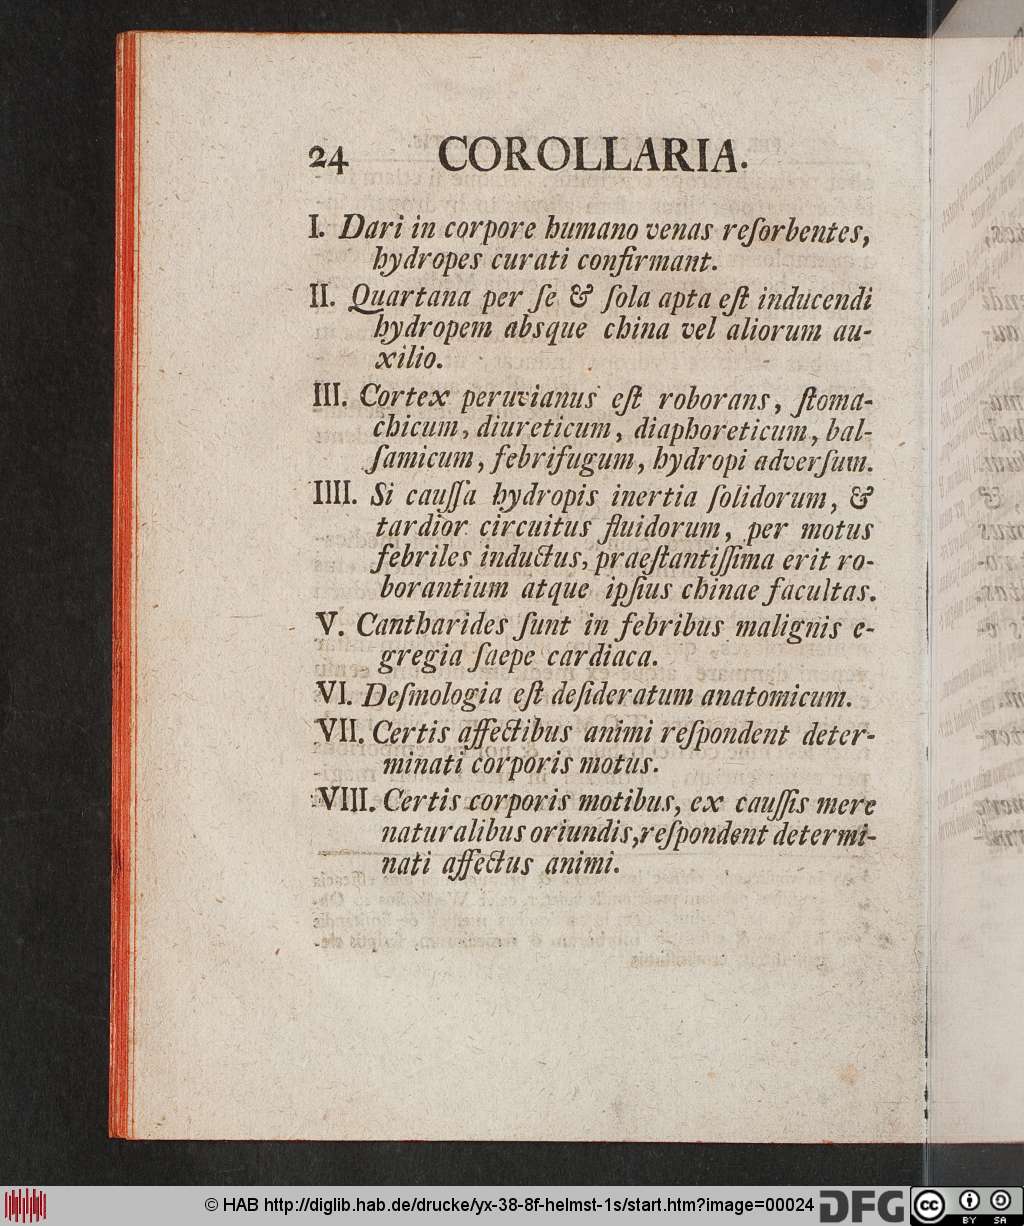 24 COROLLARIA.
I. Dari in corpore humano venas reſorbentes,
hydropes curati confirmant.
II. Quartana per ſe & ſola apta eſt inducendi
hydropem absque china vel aliorum au-
xilio.
III. Cortex peruvianus eſt roborans, ſtoma-
chicum, diureticum, diaphoreticum, bal-
ſamicum, febrifugum, hydropi adverſum.
IIII. Si cauſſa hydropis inertia ſolidorum, &
tardior circuitus fluidorum, per motus
febriles inductus, praeſtantiſſima erit ro-
borantium atque ipſius chinae facultas.
V. Cantharides ſunt in febribus malignis e-
gregia ſaepe cardiaca.
VI. Deſmologia eſt deſideratum anatomicum.
VII. Certis affectibus animi reſpondent deter-
minati corporis motus.
VIII. Certis corporis motibus, ex cauſſis mere
naturalibus oriundis, reſpondent determi-
nati affectus animi.
© HAB http://diglib.hab.de/drucke/yx-38-8f-helmst-1s/start.htm?image=00024 DFG cc BY SA